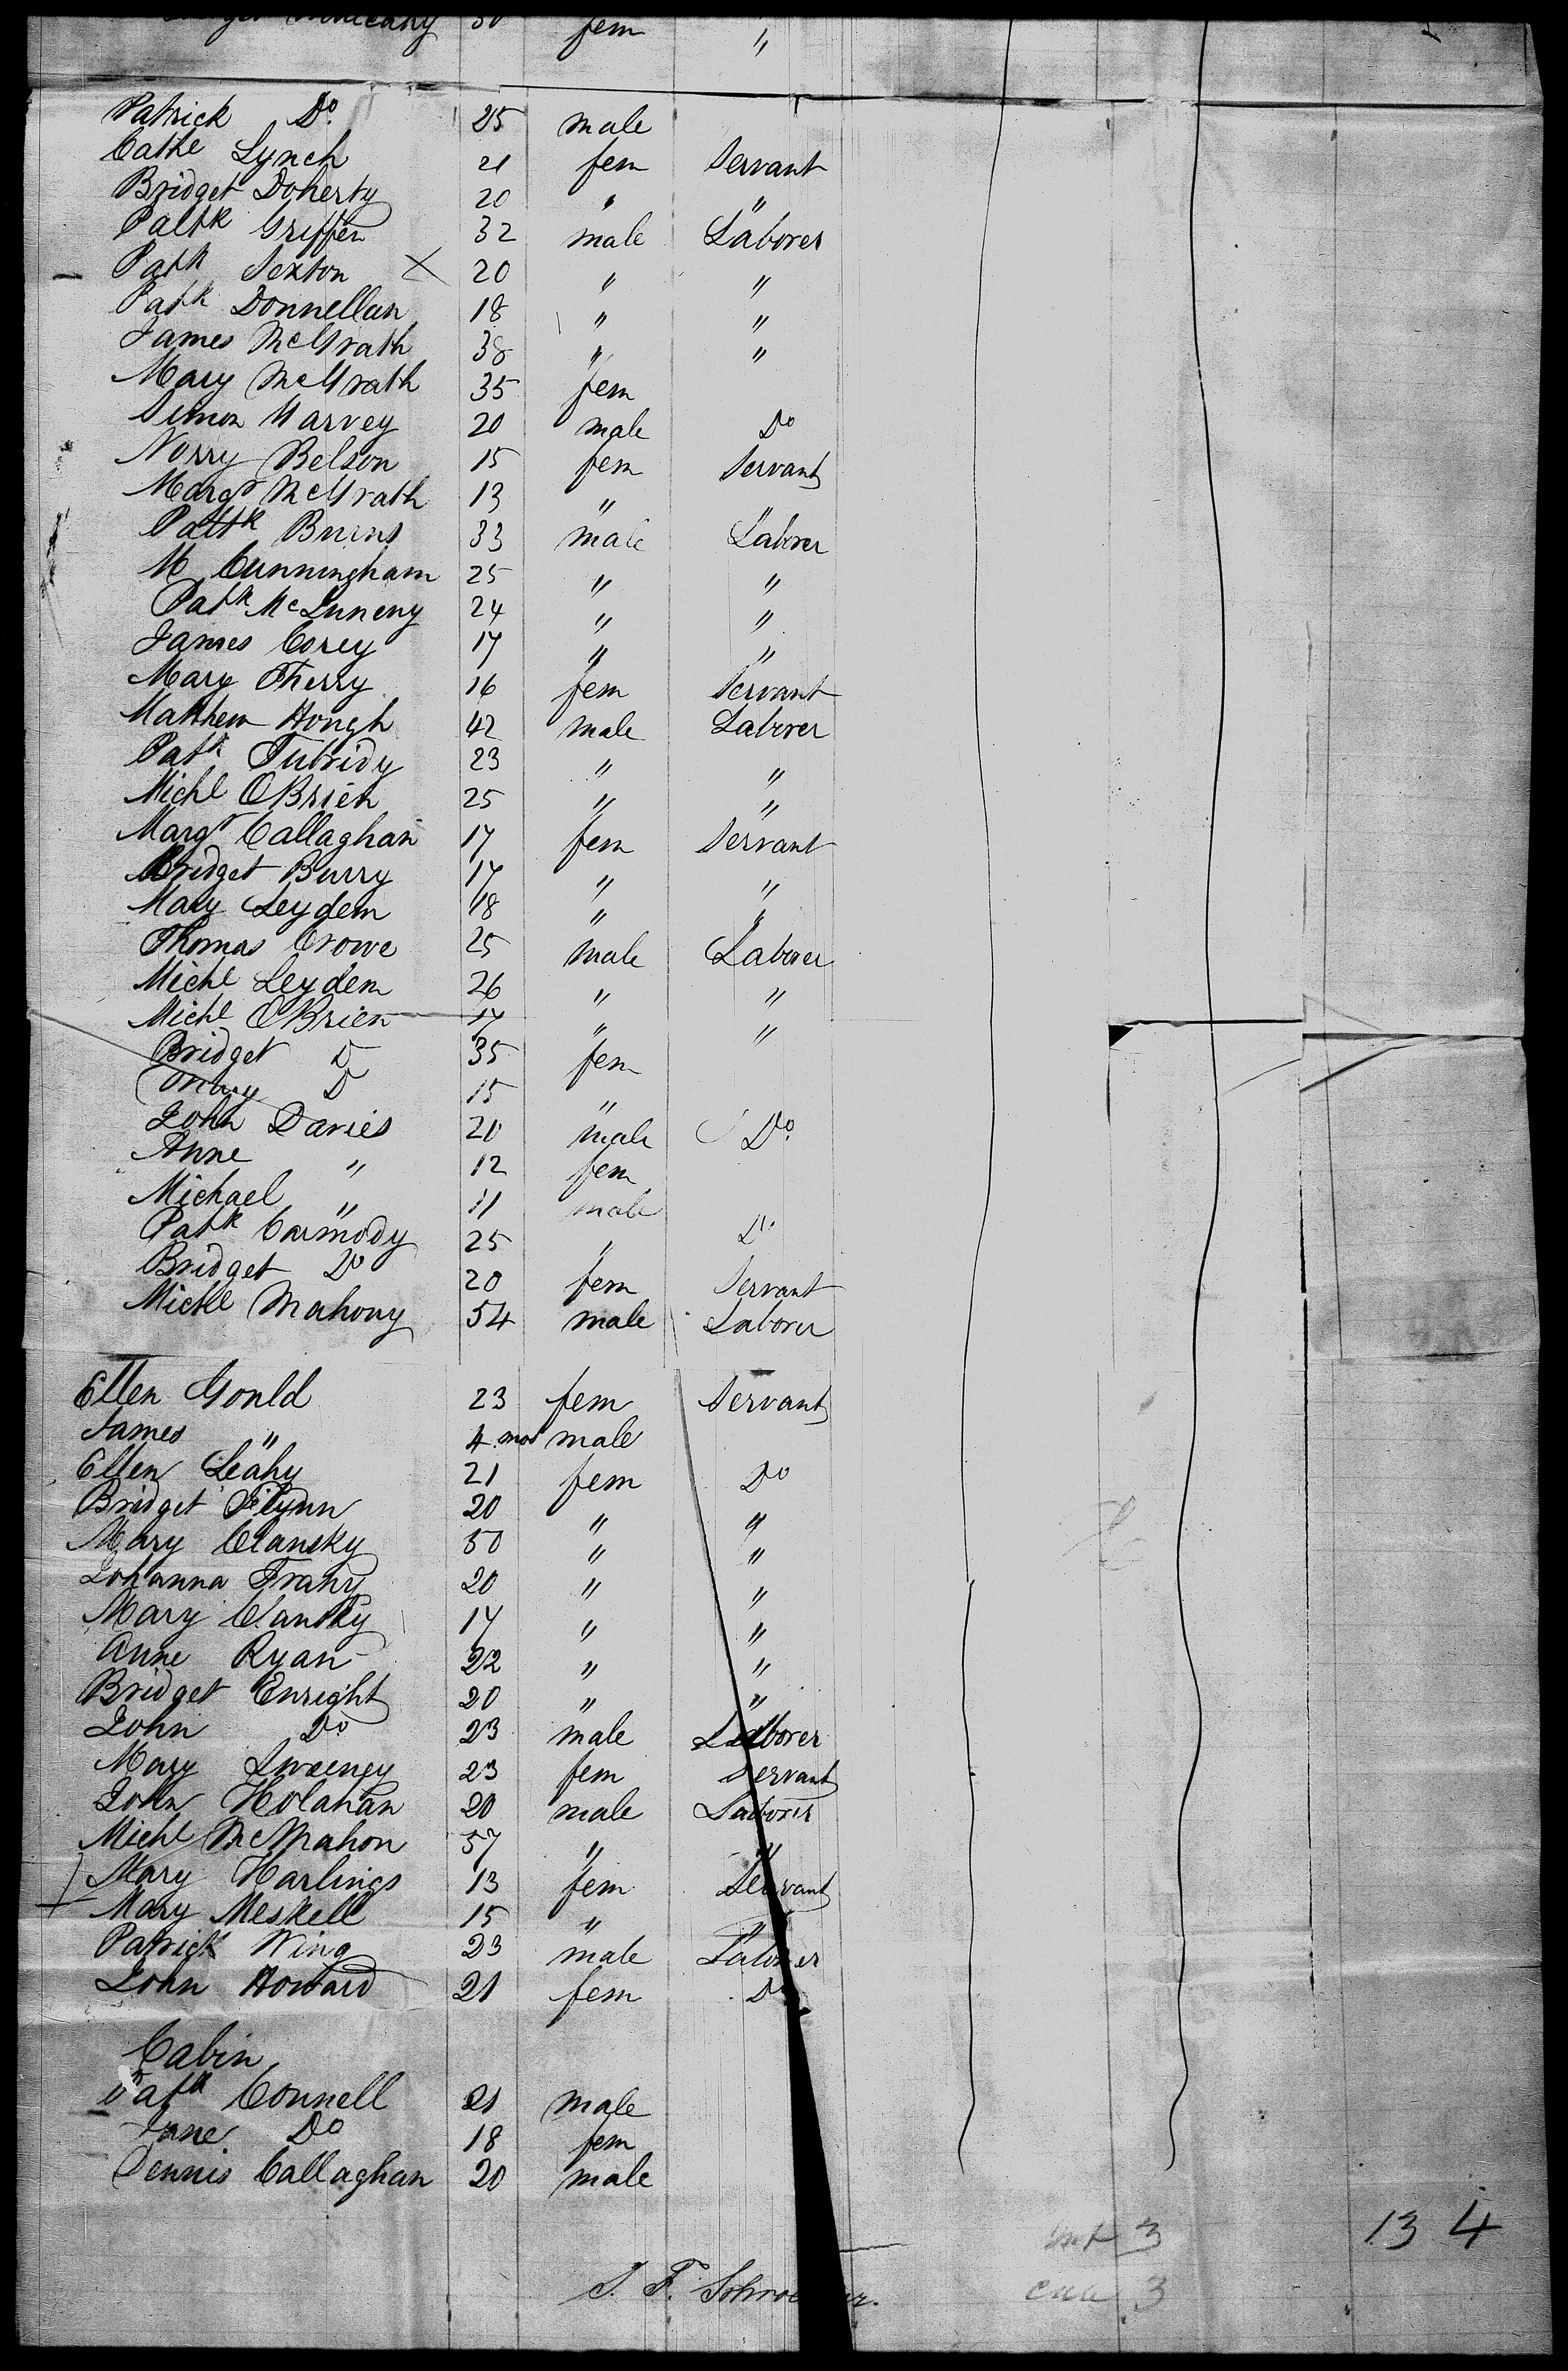 fem "
Patrick Do 25 male
Cathe Lynch 21 fem Servant
Bridget Doherty 20 " "
Patk Griffen 32 male Laborer
Patk Sexton X 20 " "
Patk Donnellan 18 " "
James McGrath 38 " "
Mary McGrath 35 fem
Simon Harvey 20 male Do
Norry Belson 15 fem Servant
Margt McGrath 13 " "
Pattk Burns 33 male Laborer
M Cunningham 25 " "
Patk McInneny 24 " "
James Corey 17 " "
Mary Therry 16 fem Servant
Matthew Hough 42 male Laborer
Patk Tubridy 23 " "
Michl OBrien 25 " "
Margt Callaghan 17 fem Servant
Bridget Burry 17 " "
Mary Leydem 18 " "
Thomas Crowe 25 male Laborer
Michl Leydem 26 " "
Michl OBrien 17 " "
Bridget D 35 fem
Mary D 15 "
John Davies 20 male Do
Anne " 12 fem
Michael " 11 male
Patk Carmody 25 " Do
Bridget Do 20 fem Servant
Michl Mahony 54 male Laborer
Ellen Gould 23 fem Servant
James " 4 mos male
Ellen Leahy 21 fem Do
Bridget Flynn 20 " "
Mary Clansky 50 " "
Johanna Frahy 20 " "
Mary Clansky 17 " "
Anne Ryan 22 " "
Bridget Enright 20 " "
John Do 23 male Laborer
Mary Sweeney 23 fem Servant
John Holahan 20 male Laborer
Michl McMahon 57 " "
Mary Harlings 13 fem Servant
Mary Meskell 15 " "
Patrick Wing 23 male Laborer
John Howard 21 fem Do
Cabin
Patk Connell 21 male
Jane Do 18 fem
Dennis Callaghan 20 male
3 13 4
J. F.
3